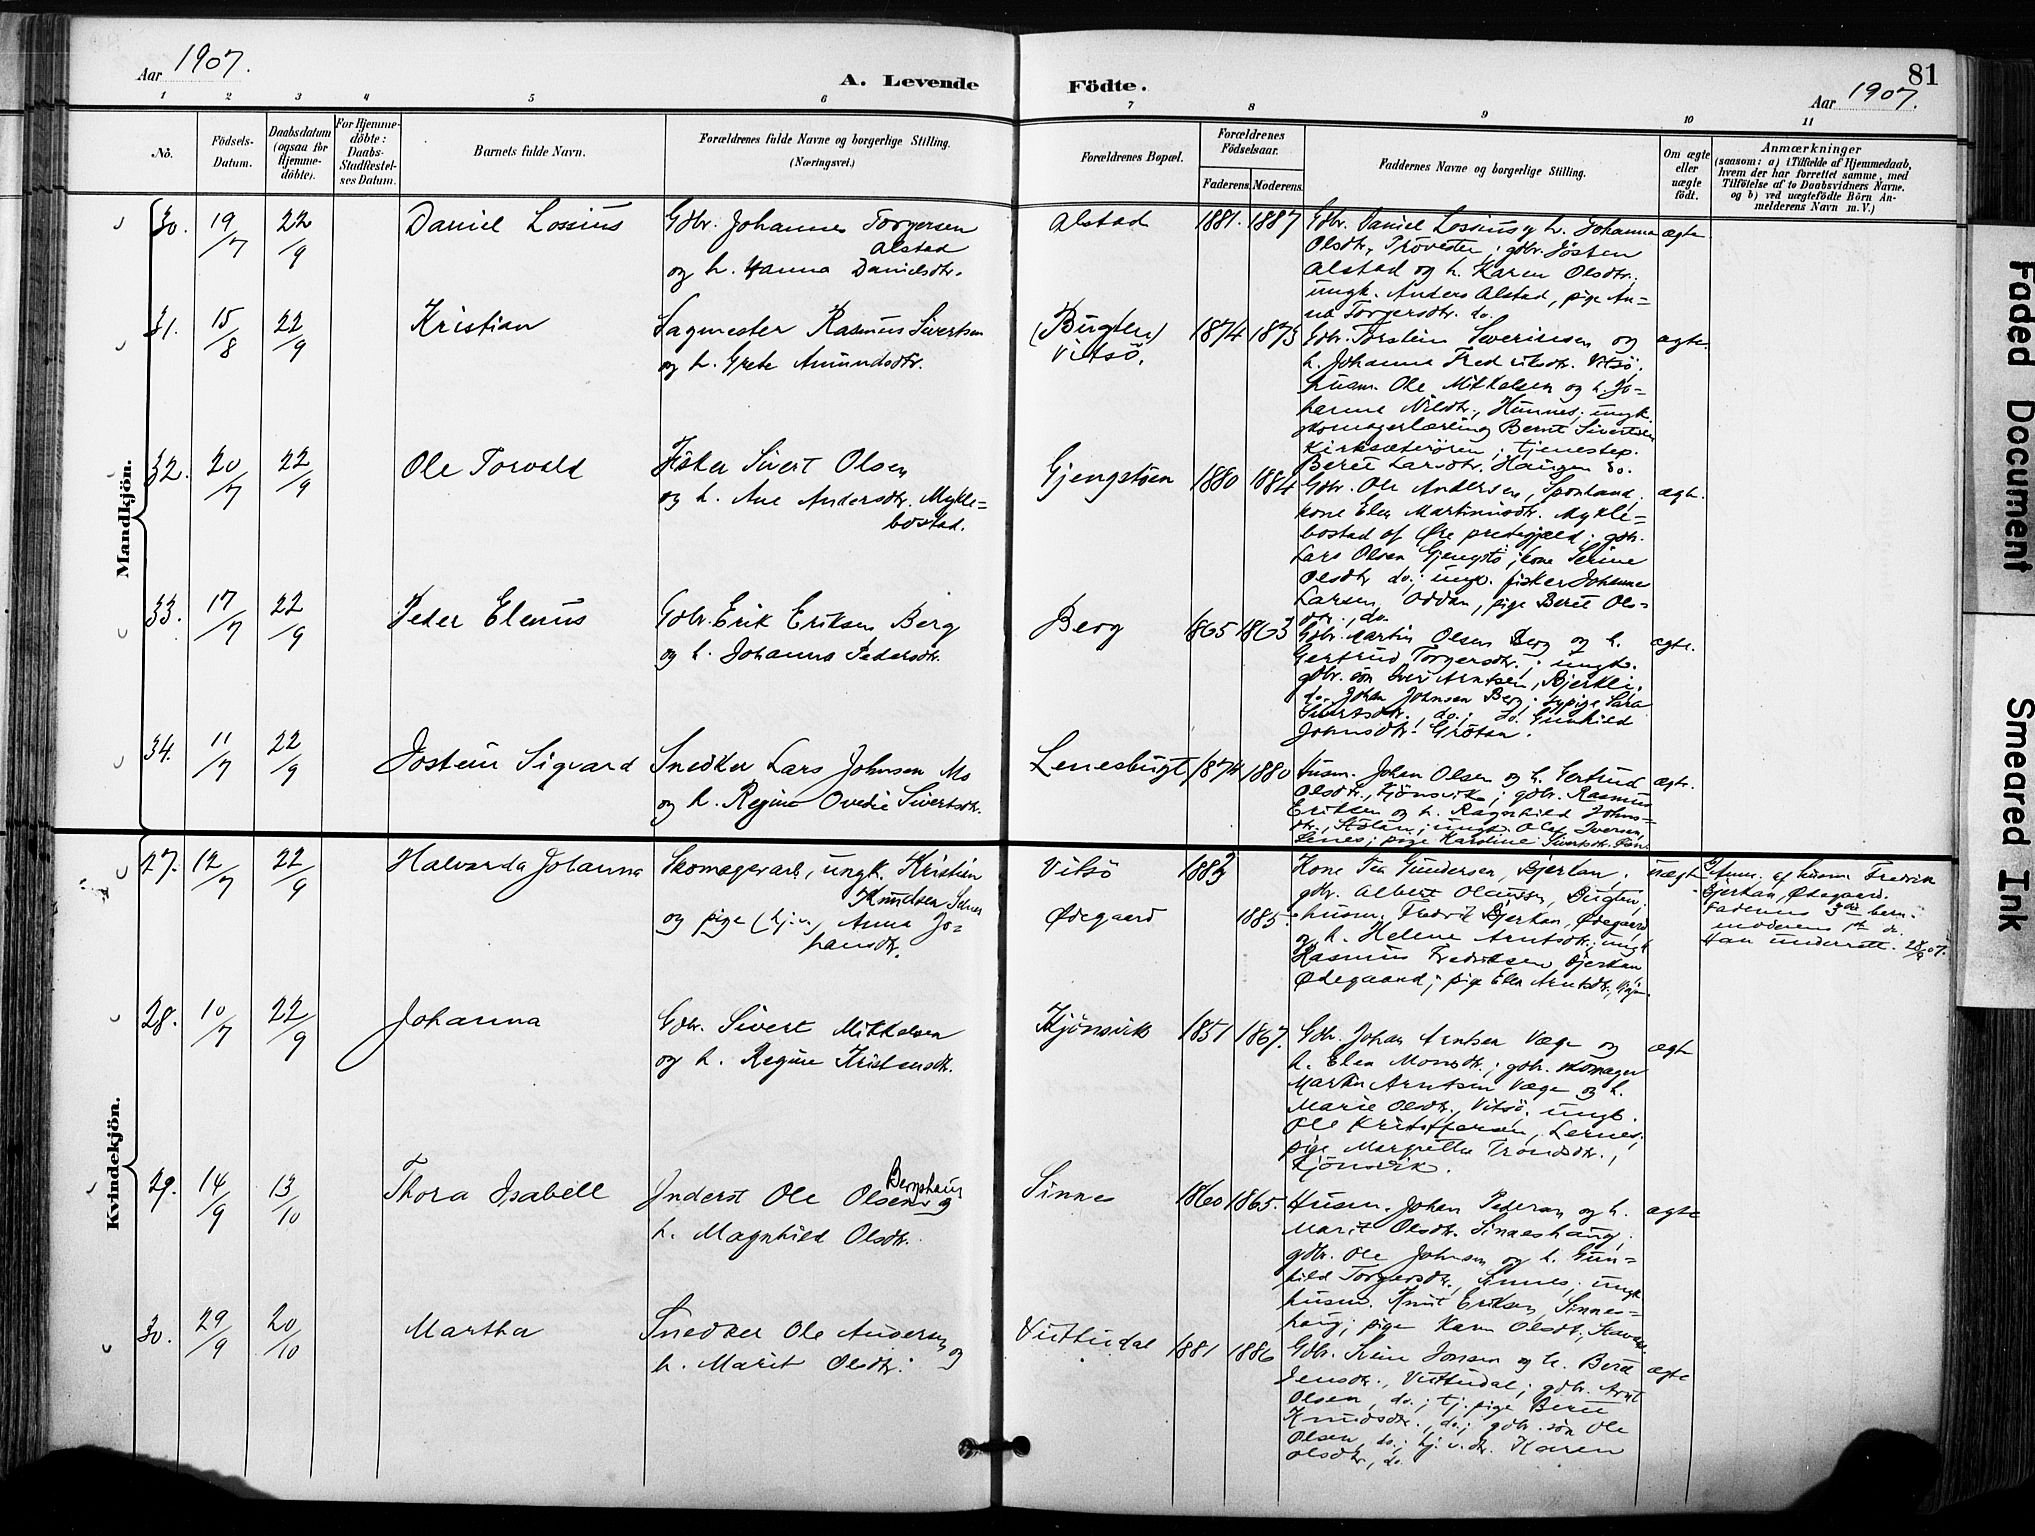 Aar 1907.
A. Levende
Födte.
81
Aar 1907.
1 2 3 4 5 6 7 8 9 10 11
Nö.
Födsels-
Datum.
Daabsdatum
(ogsaa for
Hjemme-
döbte).
For Hjemme-
döbte:
Daabs-
Stadfæstel-
ses Datum.
Barnets fulde Navn.
Forældrenes fulde Navne og borgerlige Stilling.
(Næringsvei.)
Forældrenes Bopæl.
Forældrenes
Födselsaar.
Faderens. Moderens.
Faddernes Navne og borgerlige Stilling.
Om ægte
eller
uægte
födt.
Anmærkninger
(saasom: a) i Tilfælde af Hjemmedaab,
hvem der har forrettet samme, med
Tilföielse af to Daabsvidners Navne.
og b) ved uægtefödte Börn An-
melderens Navn m. V.)
Mandkjön.
30. 19/7 22/9 Daniel Lossius
Gdbr. Johannes Torgersen
Alstad
og h. Hanna Danielsdtr.
Alstad 1881. 1887
Gdbr. Daniel Lossius og h. Johanna
Olsdtr, Prövesten; gdbr. Jösten
Alstad og h. Karen Olsdtr.;
ungk. Anders Alstad, pige An-
na Torgersdtr. do.
ægte
31. 15/8 22/9 Kristian
Sagmester Rasmus Sivertsen
og h. Grete Amundsdtr.
(Bugten)
Vitsö.
1874 1873
Gdbr. Torstein Severinsen og
h. Johanna Fredriksdtr. Vitsö;
husm. Ole Mikkelsen og h. Jo-
hanna Nilsdtr., Hunnes; ungk.
skomagerlærling Bernt Sivertsen
Kirksæterören; tjenestep.
Berit Larsdtr. Haugen do.
ægte.
32. 20/7 22/9 Ole Torvald
Fisker Sivert Olsen
og h. Ane Andersdtr. Mykle-
bostad.
Gjengstöen 1880 1884
Gdbr. Ole Andersen,
kone Elen Martinusdtr. Mykle-
bostad af Öre prestegjæld; gdbr.
Lars Olsen Gjengstö; kone Serine
Olsdtr do.; ungk. fisker Johannes
Larsen, Oddan, pige Berit Ols-
dtr., do.
ægte.
33. 17/7 22/9 Peder Elenus
Gdbr. Erik Eriksen Berg
og h. Johanna Pedersdtr.
Berg 1865 1863
Gdbr. Martin Olsen Berg og h.
Gertrud Torgersdtr.; ungk.
gdbr. sön Iver Arntsen, Bjerkli;
do. Johan Johnsen Berg; sypige Sara
Sivertsdtr. do.; do. Gunhild
Johnsdtr. Grötan.
ægte.
34. 11/7 22/9 Jostein Sigvard
Snedker Lars Johnsen Mo
og h. Regine Ovedie Sivertsdtr.
Lenesbugt 1874 1880
Husm. Johan Olsen og h. Gertrud
Olsdtr., Kjönsvik; gdbr. Rasmus
Eriksen og h. Ragnhild Johns-
dtr., Stölan; ungk. Ole Iversen,
Lenes; pige Karoline Sivertsdtr.
ægte.
Kvindekjön.
27. 12/7 22/9 Halvarda Johanna
Skomagerarb., ungk. Kristian
Knudsen
og pige (hj.) Anna Jo-
hansdtr.
Vitsö 1883
Ödegaard 1885.
Kone Tea Gundersen, Bjerkan;
gdbr. Albert Olaussen, Bugten;
husm. Fredrik Bjerkan, Ödegaard
og h. Helene Arntsdtr.; ungk.
Rasmus Fredriksen Bjerkan
Ödegaard; pige Elen Arntsdtr.,
uægte
Anm. af husm. Fredrik
Bjerkan, Ödegaard.
Faderens 3die barn.
moderens 1ste do.
Han underrett. 28/9 07.
28. 10/7 22/9 Johanna
Gdbr. Sivert Mikkelsen
og h. Regine Kristensdtr.
Kjönsvik 1851 1867.
Gdbr. Johan Arntsen Væge og
h. Elen Monsdtr.; gdbr. skomager
Martin Arntsen Væge og h.
Marie Olsdtr., Vitsö; ungk.
Ole Kristoffersen, Lernes;
pige Margrethe Trondsdtr.,
Kjönsvik.
ægte
29. 14/9 13/10 Thora Isabell
Inderst Ole Olsen Bergshaug og
h. Magnhild Olsdtr.
Sinnes 1860 1865.
Husm. Johan Pedersen og h.
Marit Olsdtr. Sinneshaug;
gdbr. Ole Johnsen og h. Gun-
hild Torgersdtr., Sinnes; ungk
husm. Knut Eriksen Sinnes-
haug; pige Karen Olsdtr,
ægte
30. 29/9 20/10 Martha
Snedker Ole Andersen og
h. Marit Olsdtr.
Vuttudal 1881 1886
Gdbr. Sven Jonsen og h. Berit
Jensdtr., Vuttudal; gdbr. Arnt
Olsen, do.; tj. pige Berit
Knudsdtr., do.; gdbr. sön Ole
Olsen, do.; hj. v. dtr. Karen
Olsdtr, do.
ægte
Faded Document
Smeared Ink